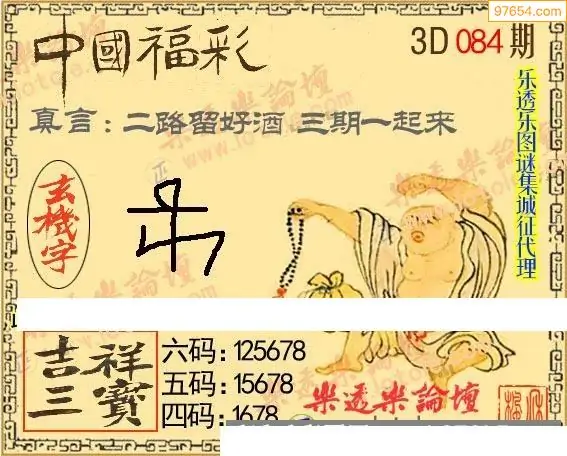 97654.com
中國福彩
3D 084 期
真言：二路留好酒 三期一起来
乐透乐图谜集城征代理
玄機字
吉祥三寶
六码：125678
五码：15678
四码：1678
樂透樂論壇